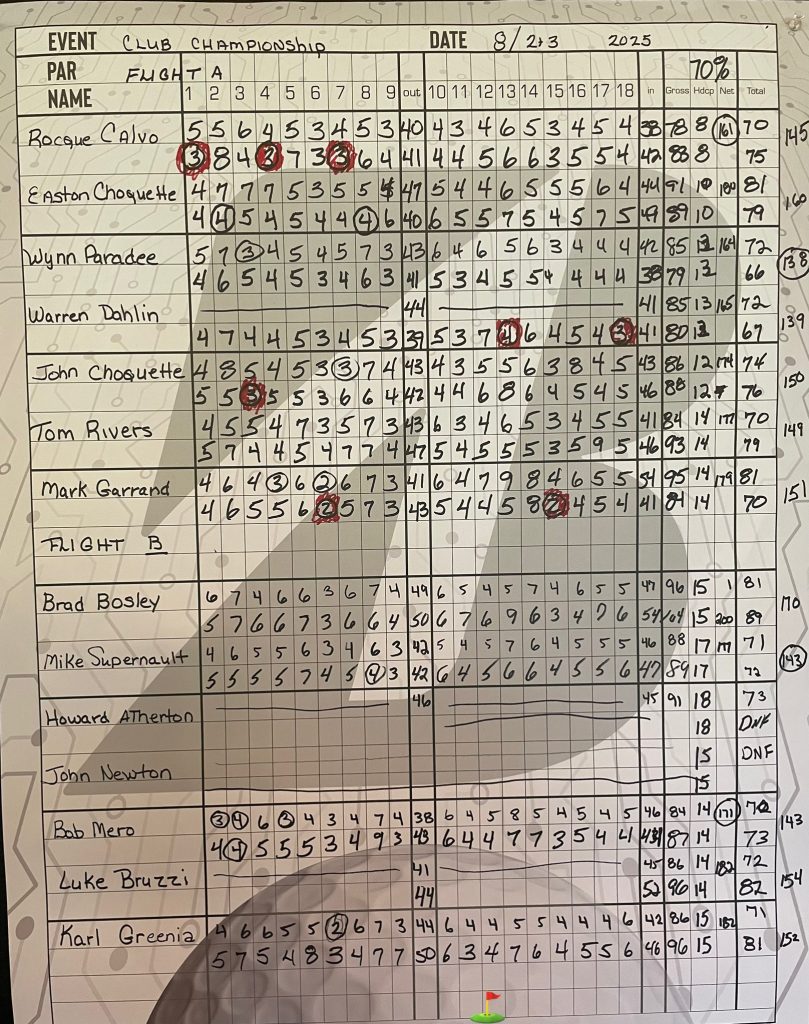 EVENT CLUB CHAMPIONSHIP DATE 8/2+3 2025
PAR FLIGHT A 70%
NAME 1 2 3 4 5 6 7 8 9 out 10 11 12 13 14 15 16 17 18 in Gross Hdcp Net Total
Rocque Calvo 5 5 6 4 5 3 4 5 3 40 4 3 4 6 5 3 4 5 4 38 78 8 161 70 145
3 8 4 3 7 3 3 6 4 41 4 4 5 6 6 3 5 5 4 42 83 8 75
Easton Choquette 4 7 7 7 5 3 5 5 4 47 5 4 4 6 5 5 5 6 4 44 91 10 180 81 160
4 4 5 4 5 4 4 4 6 40 6 5 5 7 5 4 5 7 5 49 89 10 79
Wynn Paradee 5 7 3 4 5 4 5 7 3 43 6 4 6 5 6 3 4 4 4 42 85 13 164 72 138
4 6 5 4 5 3 4 6 3 41 5 3 4 5 5 4 4 4 4 38 79 13 66
Warren Dahlin 44 41 85 13 165 72 139
4 7 4 4 5 3 4 5 3 39 5 3 7 4 6 4 5 4 3 41 80 13 67
John Choquette 4 8 5 4 5 3 3 7 4 43 4 3 5 5 6 3 8 4 5 43 86 12 174 74 150
5 5 3 5 5 3 6 6 4 42 4 4 6 8 6 4 5 4 5 46 88 12 76
Tom Rivers 4 5 5 4 7 3 5 7 3 43 6 3 4 6 5 3 4 5 5 41 84 14 177 70 149
5 7 4 4 5 4 7 7 4 47 5 4 5 5 5 3 5 9 5 46 93 14 79
Mark Garrand 4 6 4 3 6 2 6 7 3 41 6 4 7 9 8 4 6 5 5 54 95 14 179 81 151
4 6 5 5 6 2 5 7 3 43 5 4 4 5 8 2 4 5 4 41 84 14 70
FLIGHT B
Brad Bosley 6 7 4 6 6 3 6 7 4 49 6 5 4 5 7 4 6 5 5 47 96 15 1 81 170
5 7 6 6 7 3 6 6 4 50 6 7 6 9 6 3 4 7 6 54 104 15 200 89
Mike Supernault 4 6 5 5 6 3 4 6 3 42 5 4 5 7 6 4 5 5 5 46 88 17 177 71 143
5 5 5 5 7 4 5 4 3 42 6 4 5 6 6 4 5 5 6 47 89 17 72
Howard Atherton 46 45 91 18 73
18 DNF
John Newton 15 DNF
15
Bob Mero 3 4 6 3 4 3 4 7 4 38 6 4 5 8 5 4 5 4 5 46 84 14 171 70 143
4 4 5 5 5 3 4 9 3 43 6 4 4 7 7 3 5 4 4 87 14 73
Luke Bruzzi 41 45 86 14 182 72 154
44 52 96 14 82
Karl Greenia 4 6 6 5 5 2 6 7 3 44 6 4 4 5 5 4 4 4 6 42 86 15 182 71 152
5 7 5 4 8 3 4 7 7 50 6 3 4 7 6 4 5 5 6 46 96 15 81